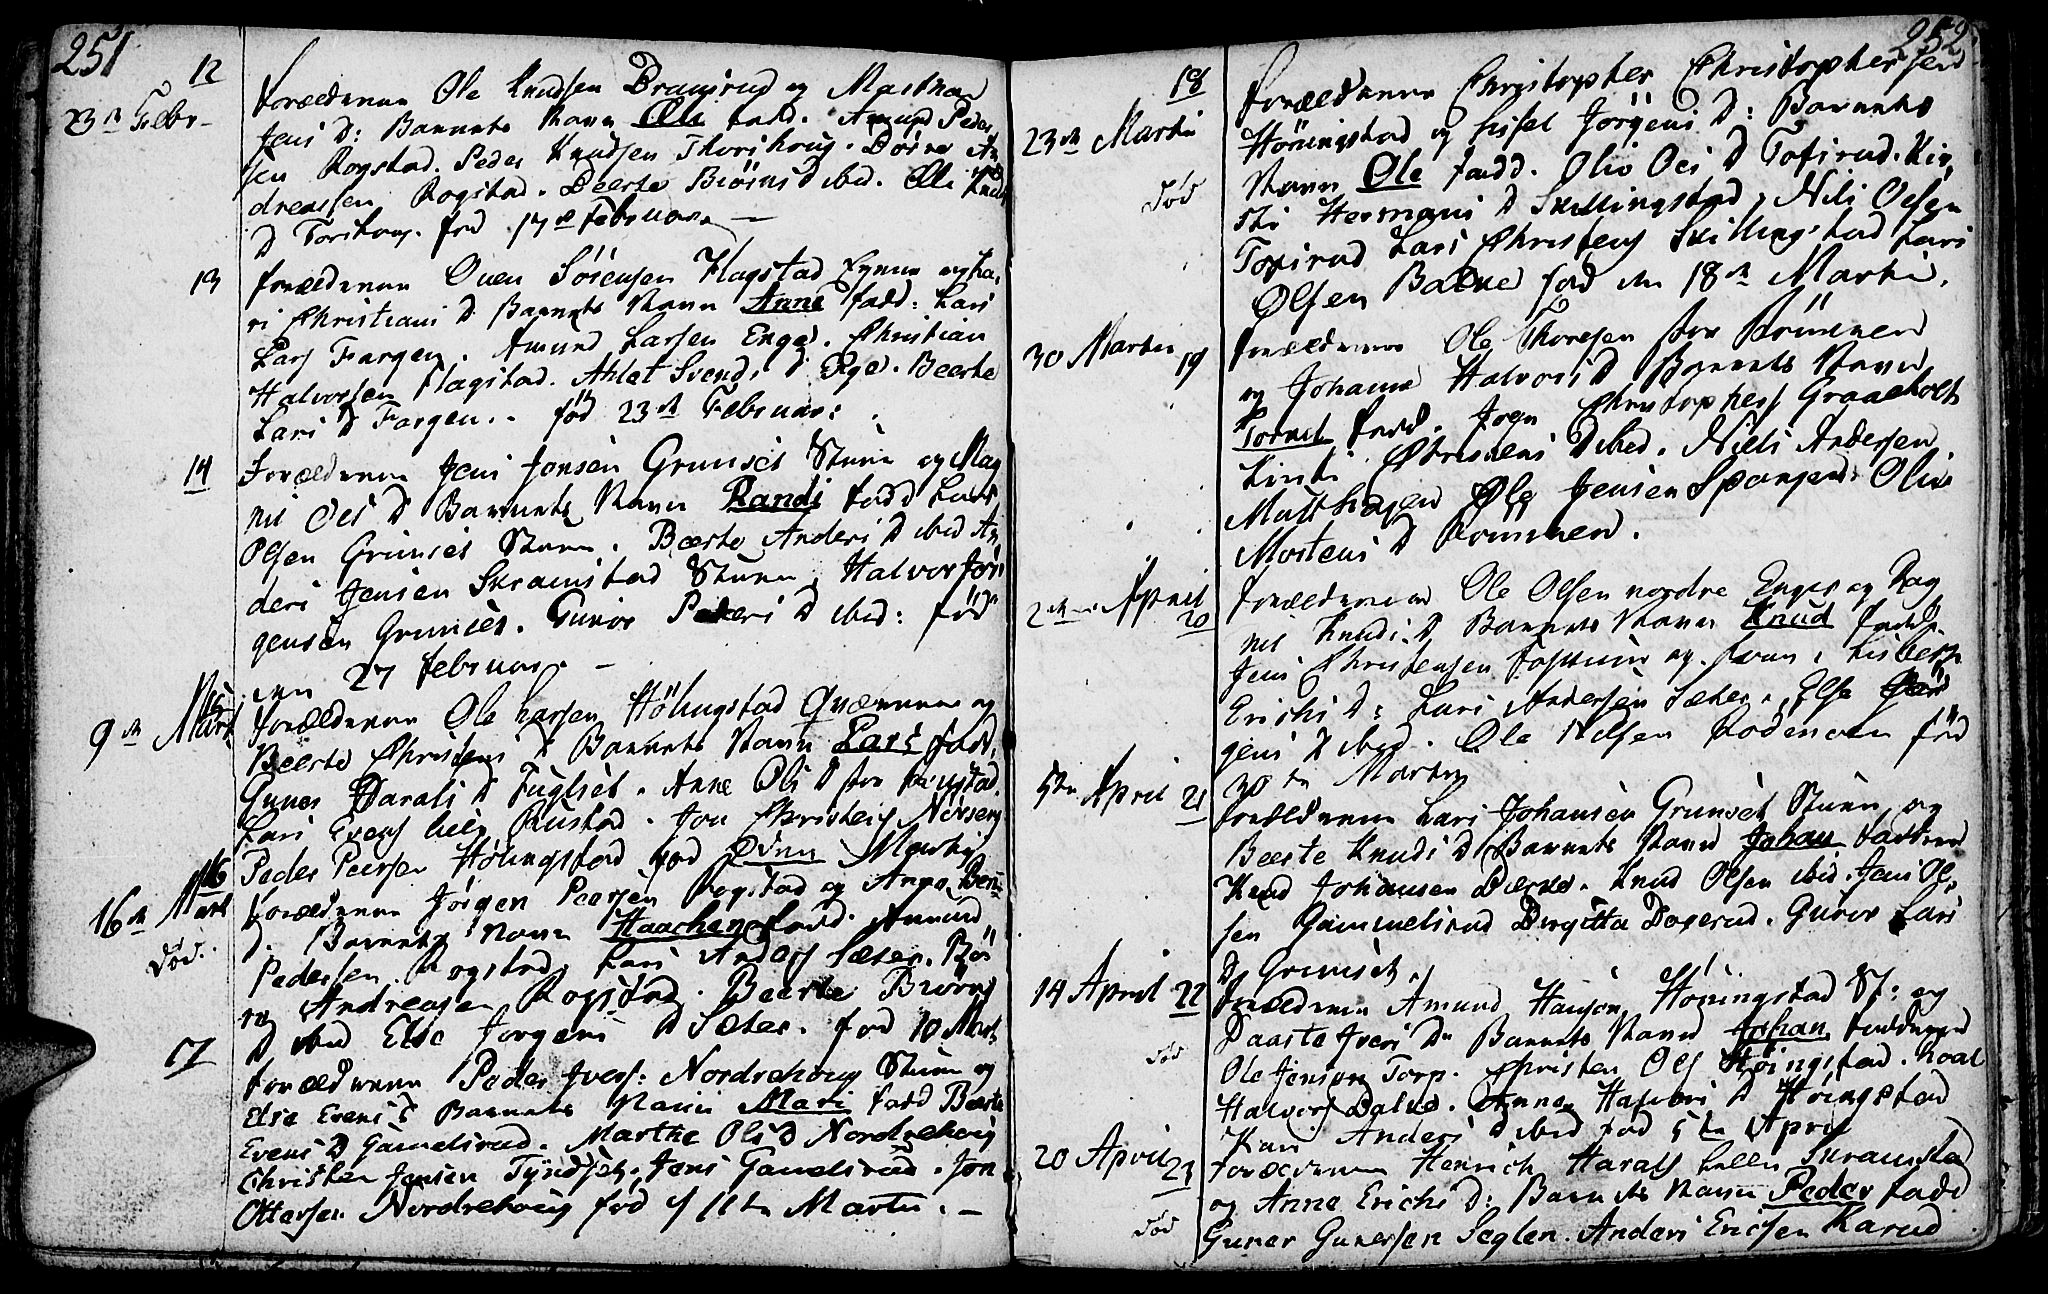 251
12
23 de Febr.
Forældrene Ole Knudsen Dragsrud og Marthe
Jens D: Barnets Navn Ole fadd. Amund Peder
sen Rogstad. Peder Knudsen Thorshoug. Børre An
dreassen Rogstad. Beerte Biörns D ibid. Ole Knuds
D Torshoug. fød 17 de Februar.
13
Forældrene Ouen Sörensen Flagstad og Ka
ri Christians D Barnets Navn Anne fadd: Lars
Lars Fargen. Amund Larsen Enger. Christian
Halvorsen Flagstad. Ahlet Svends D Rye. Beerte
Lars D Fargen. född 23 de Februar:
14
Forældrene Jens Jonsen Grunset Stuen og Mag
nil Ols D Barnets Navn Randi fadd Lars
Olsen Grunset Stuen. Beerte Anders D ibid An
ders Jensen Skramstad Stuen. Halvor Jör
gensen Grunset. Guror Peders D ibid: föd
den 27 Februar. -
9 de Mart
15
Forældrene Ole Larsen Hölingstad Quærnen og
Beerte Christens D Barnets Navn Lars fadd.
Guner Haralds D Fuglset. Anne Ols D
Lars Evens Rustad. Jon Christens
Peder Peersen Hölingstad fød Martii
16 de Mart
16
død.
Forældrene Jörgen Peersen Rogstad og Anne
D. Barnets Navn Haachen fadd. Amund
Pedersen Rogstad. Lars Anders Sæter. Bör
re Andreasen Rogstad. Beerte Biörns
D ibid Else Jörgens D Sæter. fød 10 Mart
17
Forældrene Peder Ivers: Nordrehoug Stuen og
Else Evens D Barnets Navn Mari fadd Beerte
Evens D Gamelsrud. Marthe Ols D Nordrehoug
Christen Jensen Tyndset, Jens Gamelsrud. Jon
Ottersen Nordrehoug fød 11 te Martii. -
252
18
23 de Martii
død
Forældrene Christopher Christophersen
Höningstad og Sisel Jörgens D: Barnets
Navn Ole fadd. Oliv Ols D Tofsrud. Kir
sti Hermans D Skillingstad, Nils Olsen
Tofsrud Lars Christens Skillingstad Lars
Olsen Balke fød den 18 de Martii.
30 Martii
19
Forældrene Ole Thoresen Römmen
og Johanne Halvors D Barnets Navn
fadd. Joen Christophers Graaeholt
Christens D ibid. Niels Andersen
Ole Jensen Spangen. Oliv
Mortens D Römmen.
2 den April
20
Forældrene Ole Olsen nordre Enger og Rag
nil Knuds D Barnets Navn Knud fadd.
Jens Christensen og Lisbeth
Erichs D: Lars Andersen Sæter. Else Jör
gens D ibid. Ole Nilsen föd
30 te Martii
5 te April
21
Forældrene Lars Johansen Grunset Stuen og
Beerte Knuds D Barnets Navn Johan fadderne
Knud Johansen. Knud Olsen ibid. Jens Ol
sen Gammelsrud Birgitta. Guror Lars
D Grunset.
14 April
22
død
Forældrene Amund Hansen Höningstad St: og
Ivers D Barnets Navn Johan fadderne
Ole Jensen Torp. Christen Ols Höingstad. Roal
Halvors Balke. Anne Halvors D Höingstad
Kari Anders D ibid fød 5 te April
20 April
23
død
Forældrene Henrich Harals Skramstad
og Anne Erichs D: Barnets Navn Peder fadd
Guner Gunersen Seglen. Anders Ericsen Karud